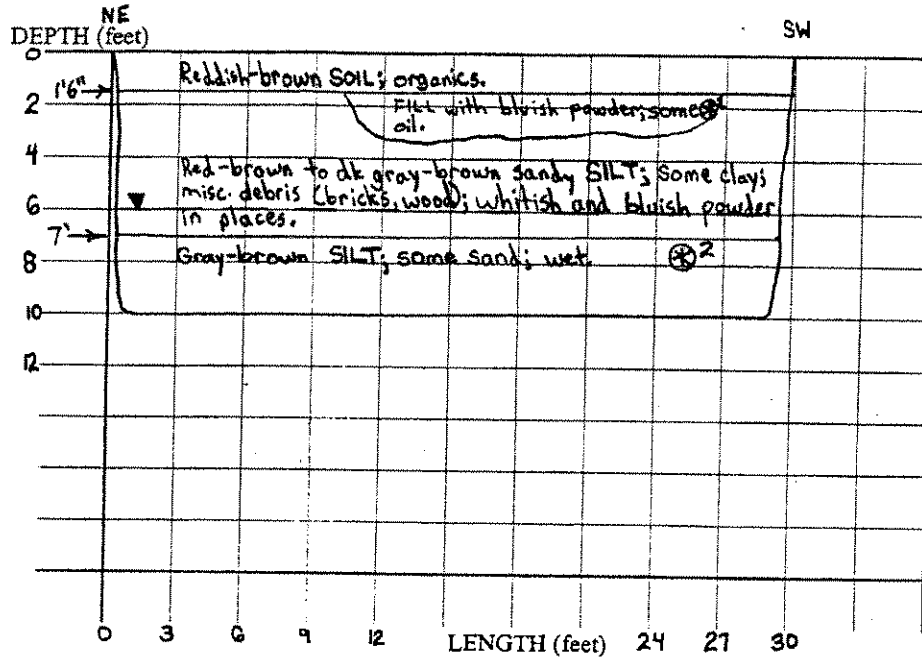 NE
SW
DEPTH (feet)
0
Reddish-brown SOIL; organics.
1'6"
2
FILL with bluish powder; some
oil.
1
4
Red-brown to dk gray-brown sandy SILT; some clay;
misc. debris (bricks, wood); whitish and bluish powder
in places.
6
7'
Gray-brown SILT; some sand; wet.
2
8
10
12
0 3 6 9 12 LENGTH (feet) 24 27 30